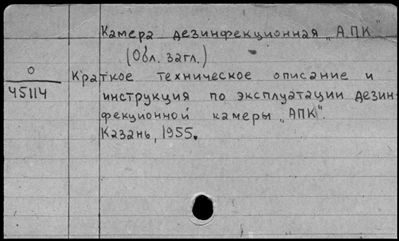 Камера дезинфекционная „А.П.К"
(Обл. загл.)
О
45114
Краткое техническое описание и
инструкция по эксплуатации дезин-
фекционной камеры „АПК".
Казань, 1955.